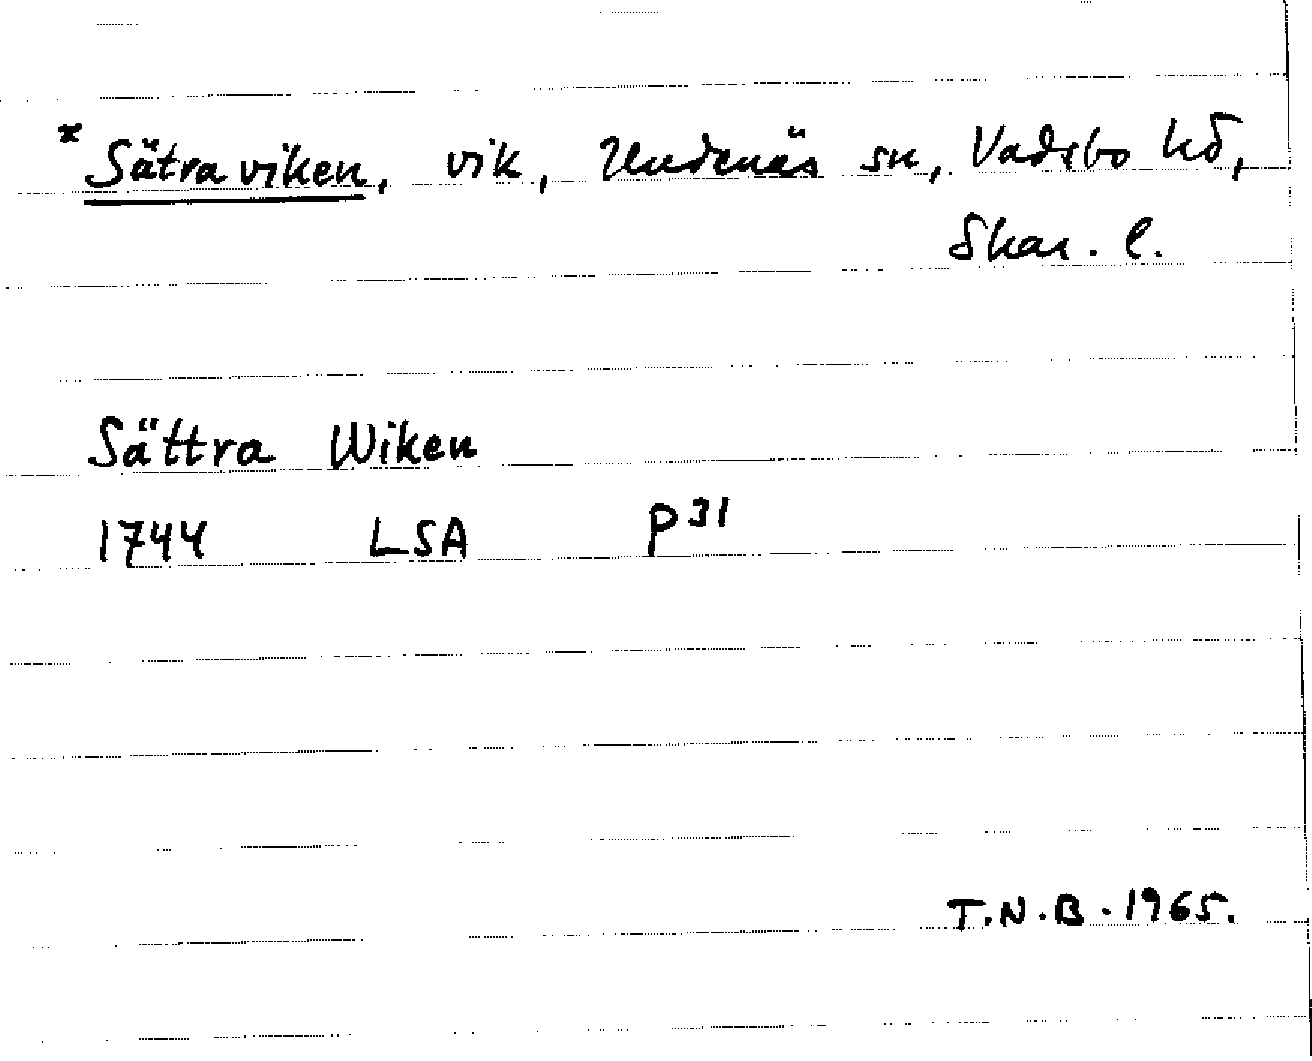 * Sätraviken, vik, Undenäs sn, Vadsbo hd,
Skar. l.
Sättra Wiken
1744 LSA P 31
T.N.B. 1965.